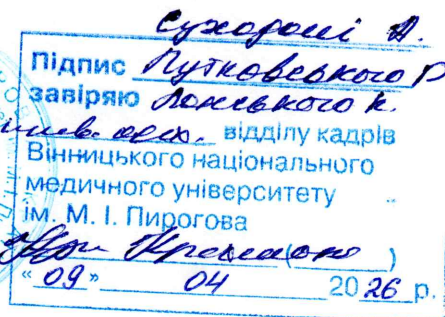 Суходолі А.
Підпис Путковського Р
завіряю Лонського К.
відділу кадрів
Вінницького національного
медичного університету
ім. М. І. Пирогова
( )
“ 09 ” 04 20 26 р.